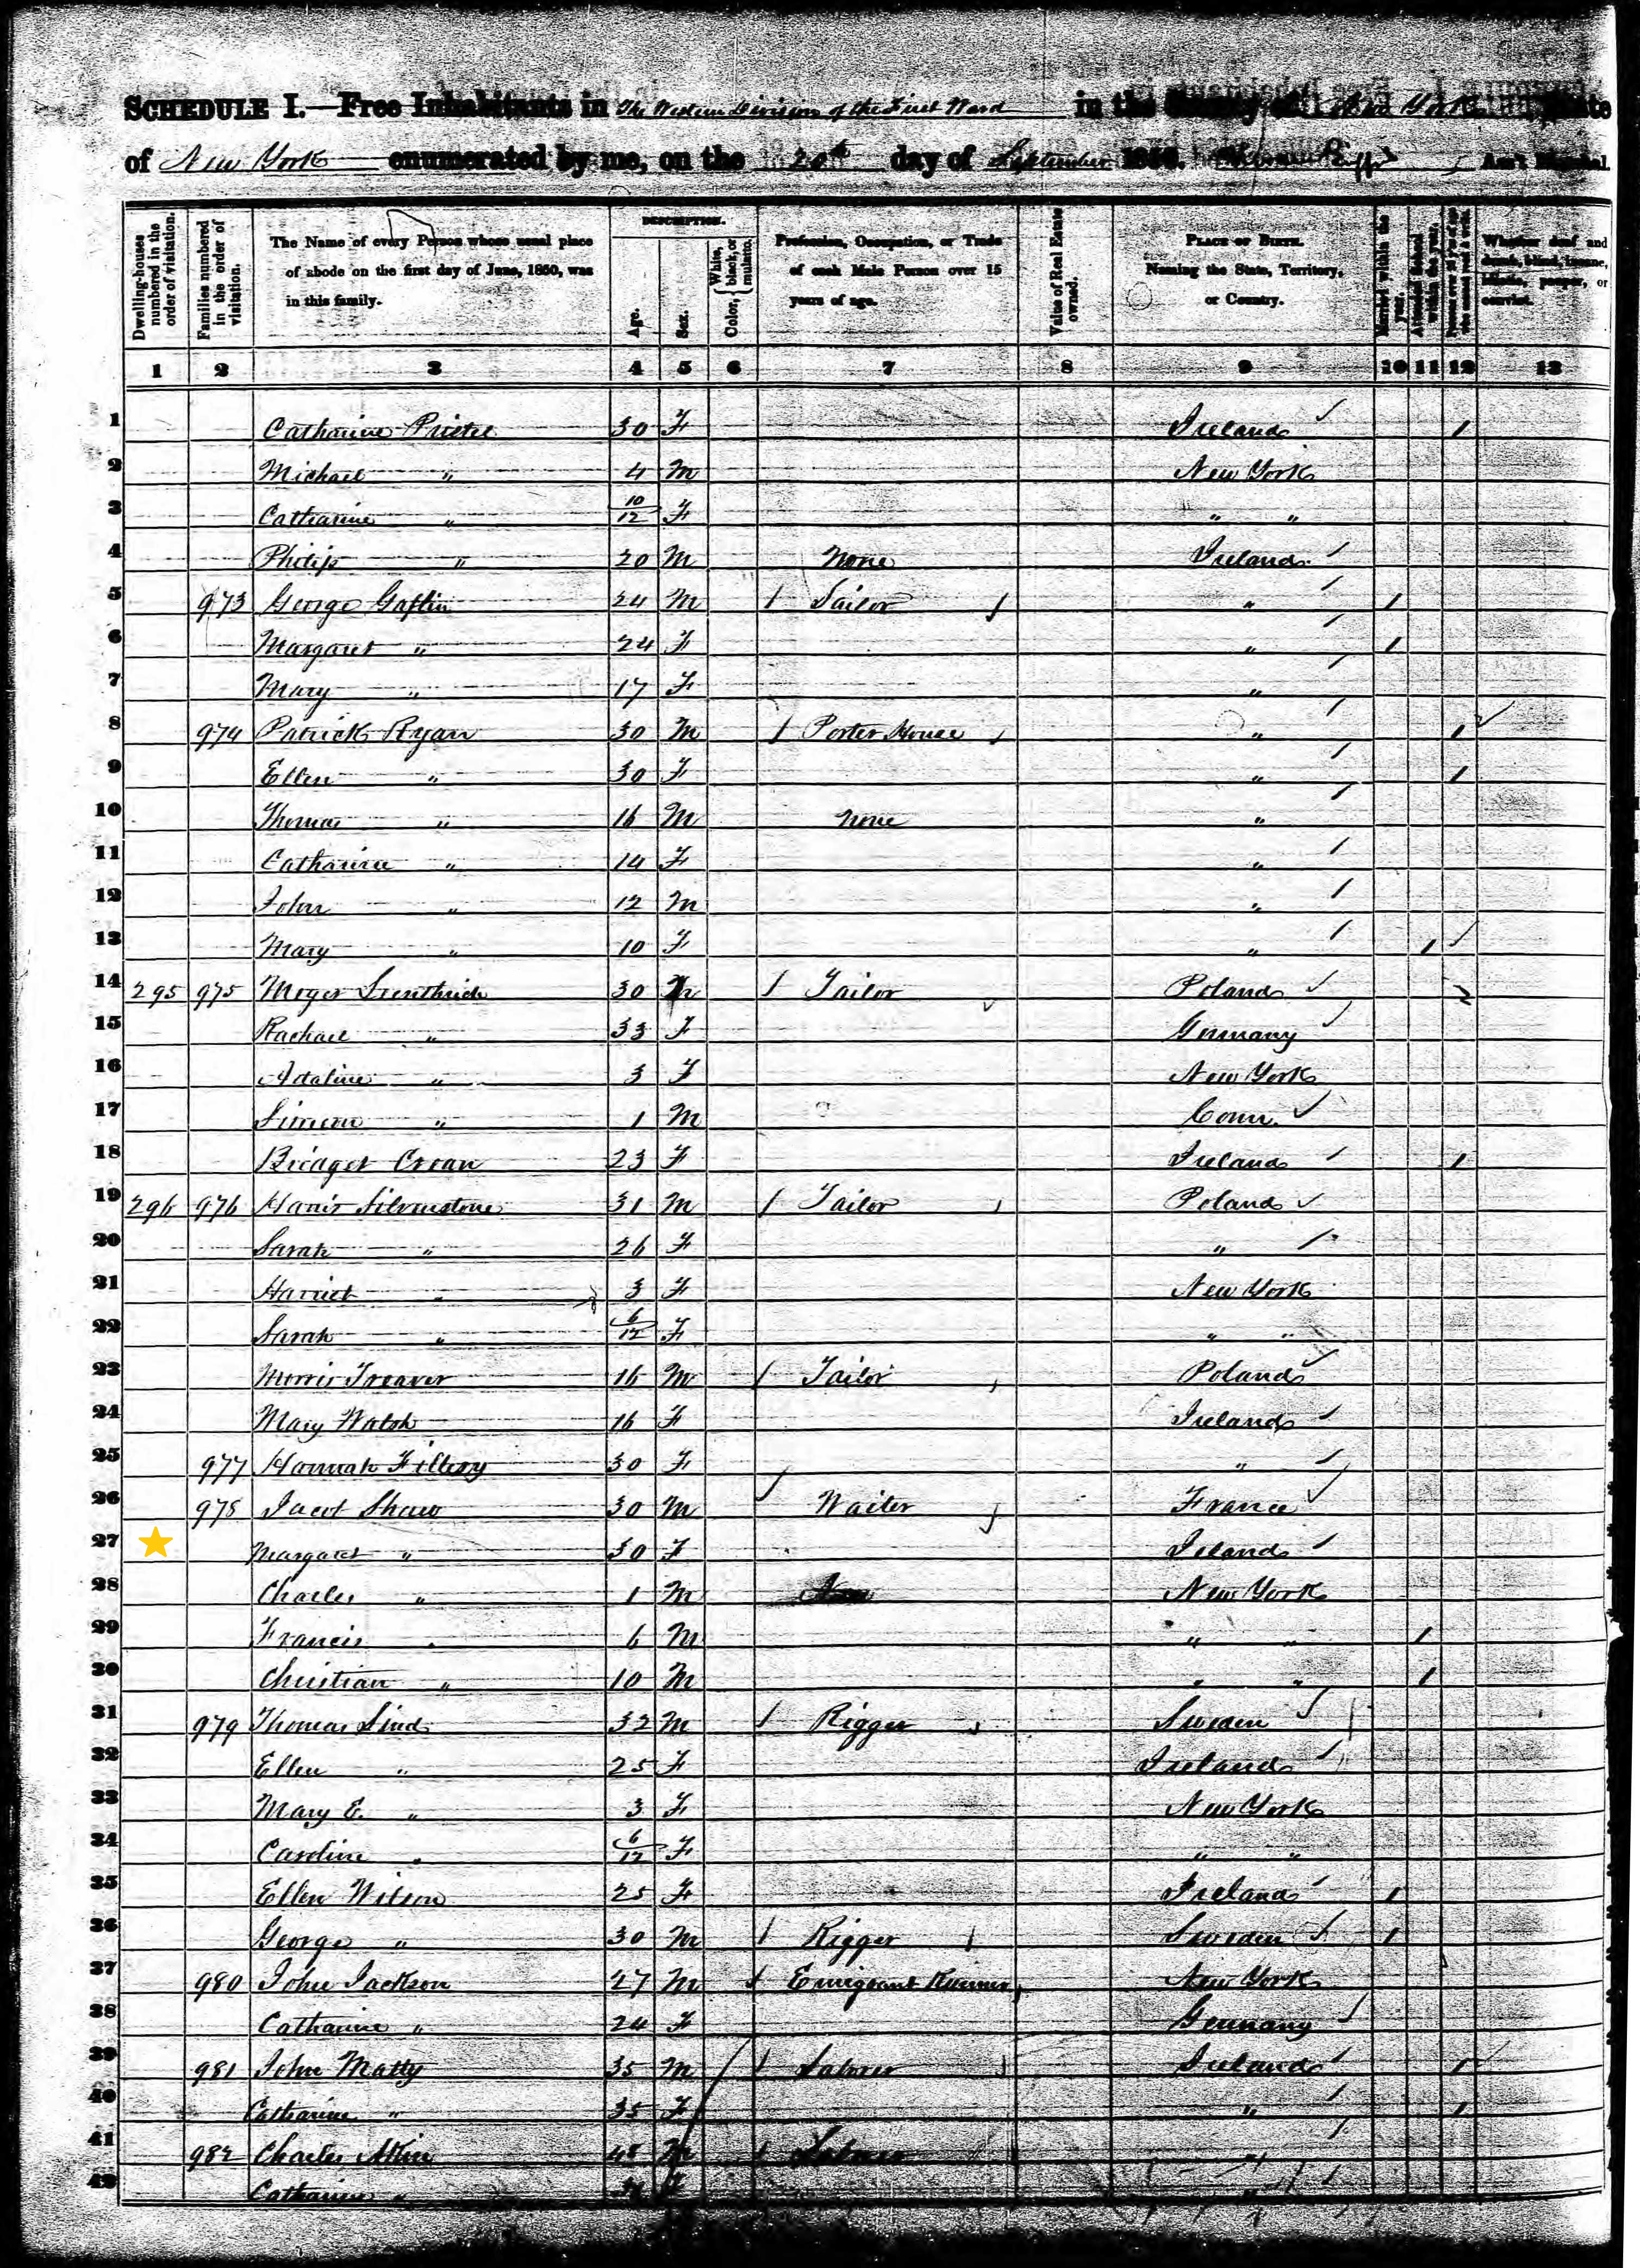 SCHEDULE I.—Free Inhabitants in The Western Division of the First Ward in the County of New York State
of New York enumerated by me, on the 20th day of September 1850. Ass't Marshal.
Dwelling-houses numbered in the order of visitation.
Families numbered in the order of visitation.
The Name of every Person whose usual place of abode on the first day of June, 1850, was in this family.
DESCRIPTION.
Age.
Sex.
Color, { White, black, or mulatto.
Profession, Occupation, or Trade of each Male Person over 15 years of age.
Value of Real Estate owned.
PLACE OF BIRTH. Naming the State, Territory, or Country.
Married within the year.
Attended School within the year.
Persons over 20 y'rs of age who cannot read & write.
Whether deaf and dumb, blind, insane, idiotic, pauper, or convict.
1 2 3 4 5 6 7 8 9 10 11 12 13
1 Catharine 30 F Ireland /
2 Michael " 4 M New York
3 Catharine " 10/12 F " "
4 Philip " 20 M None Ireland
5 973 George Gaflin 24 M / Sailor " /
6 Margaret " 24 F " /
7 Mary " 17 F "
8 974 Patrick Ryan 30 M / Porter House " /
9 Ellen " 30 F " /
10 Thomas " 16 M None "
11 Catharine " 14 F "
12 John " 12 M "
13 Mary " 10 F " /
14 295 975 Moyer 30 M / Tailor Poland
15 Rachael " 33 F Germany
16 Adaline " 3 F New York
17 Simeon " 1 M Conn.
18 Bridget Croan 23 F Ireland /
19 296 976 Harris Silverstone 31 M / Tailor Poland
20 Sarah " 26 F "
21 Harriet " 3 F New York
22 Sarah " 6/12 F " "
23 Morris Treaver 16 M / Tailor Poland
24 Mary Walsh 16 F Ireland
25 977 Hannah Fillesy 30 F "
26 978 Jacob Shaw 30 M Waiter France
27 Margaret " 30 F Ireland
28 Charles " 1 M New York
29 Francis " 6 M " " /
30 Christian " 10 M " " /
31 979 Thomas Lind 32 M / Rigger Sweden
32 Ellen " 25 F Ireland
33 Mary E. " 3 F New York
34 Caroline " 6/12 F " "
35 Ellen Wilson 25 F Ireland /
36 George " 30 M / Rigger Sweden /
37 980 John Jackson 27 M / Emigrant Runner New York
38 Catharine " 24 F Germany
39 981 John Matty 35 M / Laborer Ireland /
40 Catharine " 35 F " /
41 982 Charles 45 M / Laborer "
42 Catharine " F "